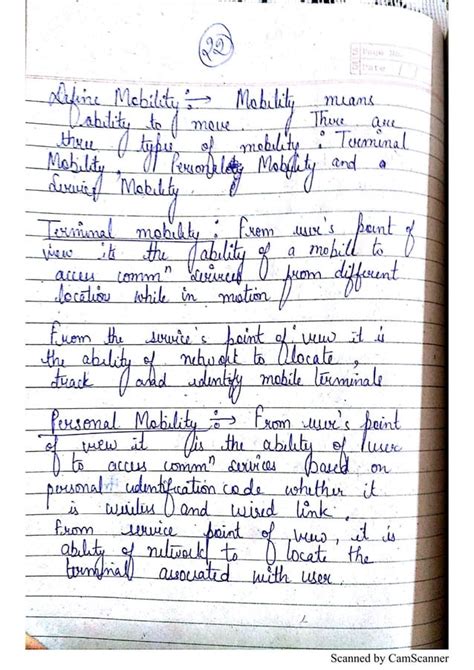 22
Page No.
Date
Define Mobility :→ Mobility means
ability to move. There are
three types of mobility : Terminal
Mobility, Personality Mobility and a
Service Mobility.
Terminal mobility : From user's point of
view its the ability of a mobile to
access commⁿ services from different
location while in motion
From the service's point of view it is
the ability of network to locate,
track and identify mobile terminals
Personal Mobility :→ From user's point
of view it is the ability of user
to access commⁿ services based on
personal identification code whether it
is wireless and wired link.
From service point of view, it is
ability of network to locate the
terminal associated with user.
Scanned by CamScanner